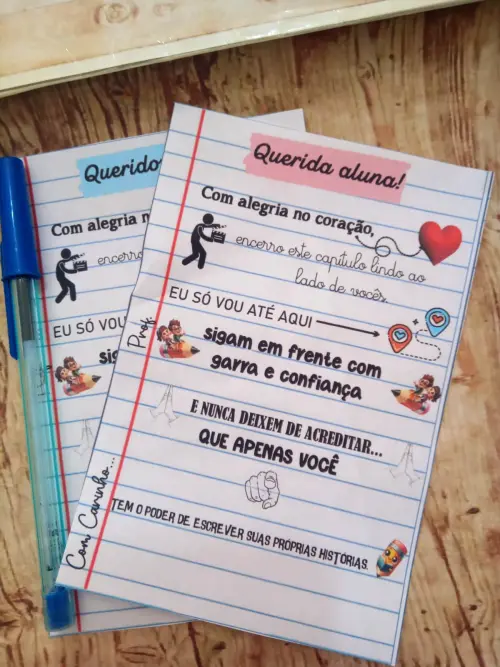 Querida aluna!
Com alegria no coração,
encerro este capítulo lindo ao
lado de vocês.
EU SÓ VOU ATÉ AQUI
sigam em frente com
garra e confiança
E NUNCA DEIXEM DE ACREDITAR...
QUE APENAS VOCÊ
TEM O PODER DE ESCREVER SUAS PRÓPRIAS HISTÓRIAS.
Com Carinho...
Prof.
Querido
Com alegria n
encerro
EU SÓ VOU
sig